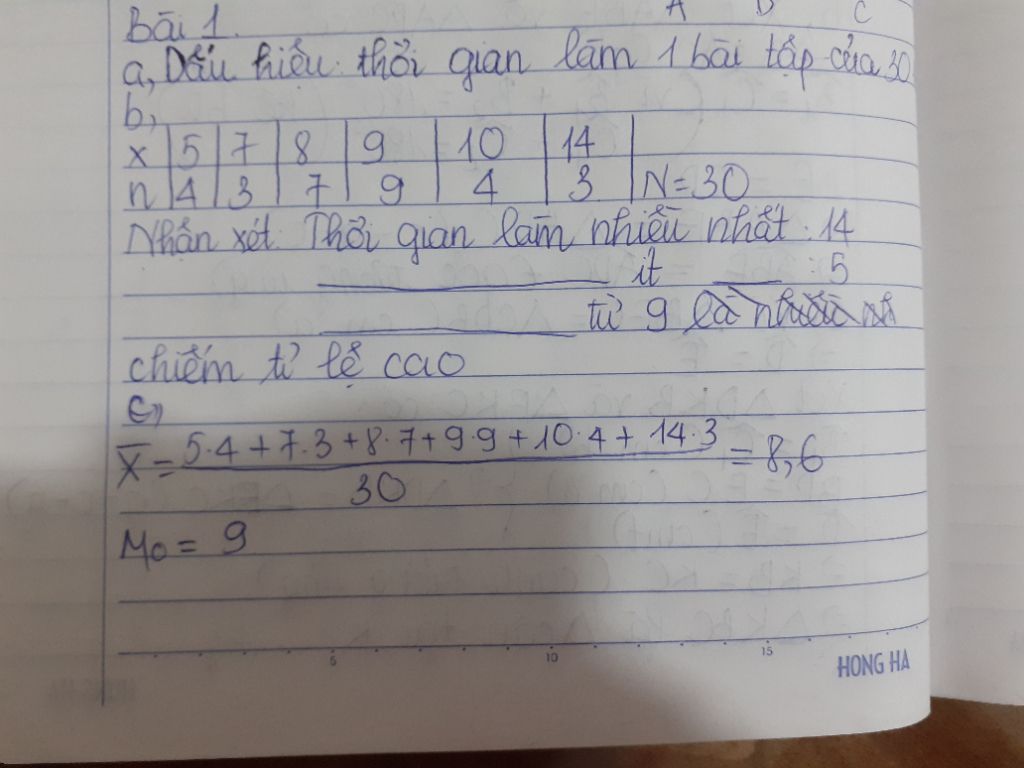 A B C
Bài 1.
a, Dấu hiệu: thời gian làm 1 bài tập của 30
b,
x | 5 | 7 | 8 | 9 | 10 | 14 |
n | 4 | 3 | 7 | 9 | 4 | 3 | N=30
Nhận xét: Thời gian làm nhiều nhất : 14
ít : 5
từ 9
chiếm tỉ lệ cao
c,
X̄ = 5.4 + 7.3 + 8.7 + 9.9 + 10.4 + 14.3 = 8,6
30
Mo = 9
5 10 15
HONG HA